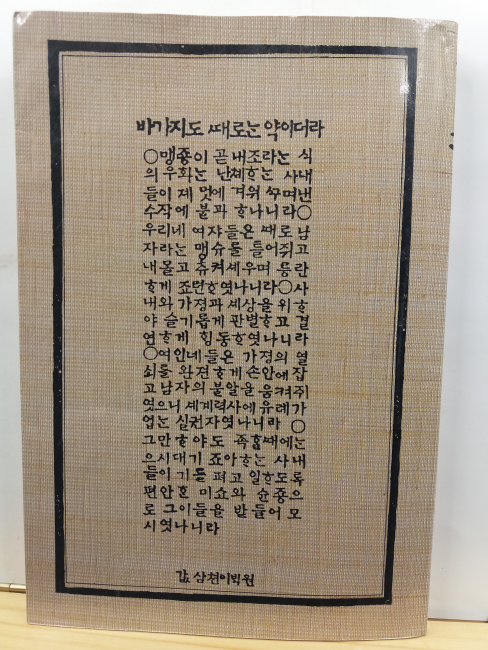 바가지도 때로는 약이더라
○맹종이 곧 내조라는 식
의 우화는 난체하는 사내
들이 제 멋에 겨워 꾸며낸
수작에 불과 하나니라○
우리네 여자들은 때로 남
자라는 맹슈를 틀어쥐고
내몰고 츄켜세우며 등란
하게 죠련하엿나니라○사
내와 가정과 세상을 위하
야 슬기롭게 판별하고 결
연하게 힝동하엿나니라
○여인네들은 가정의 열
쇠를 완젼하게 손안에 잡
고 남자의 불알을 움켜쥐
엿으니 세계력사에 유례가
업는 실권자엿나니라 ○
그만하야도 족흠때에는
으시대기 죠아하는 사내
들이 기를 펴고 일하도록
편안흔 미쇼와 슌죵으
로 그이들을 받들어 모
시엿나니라
값 삼쳔이빅원